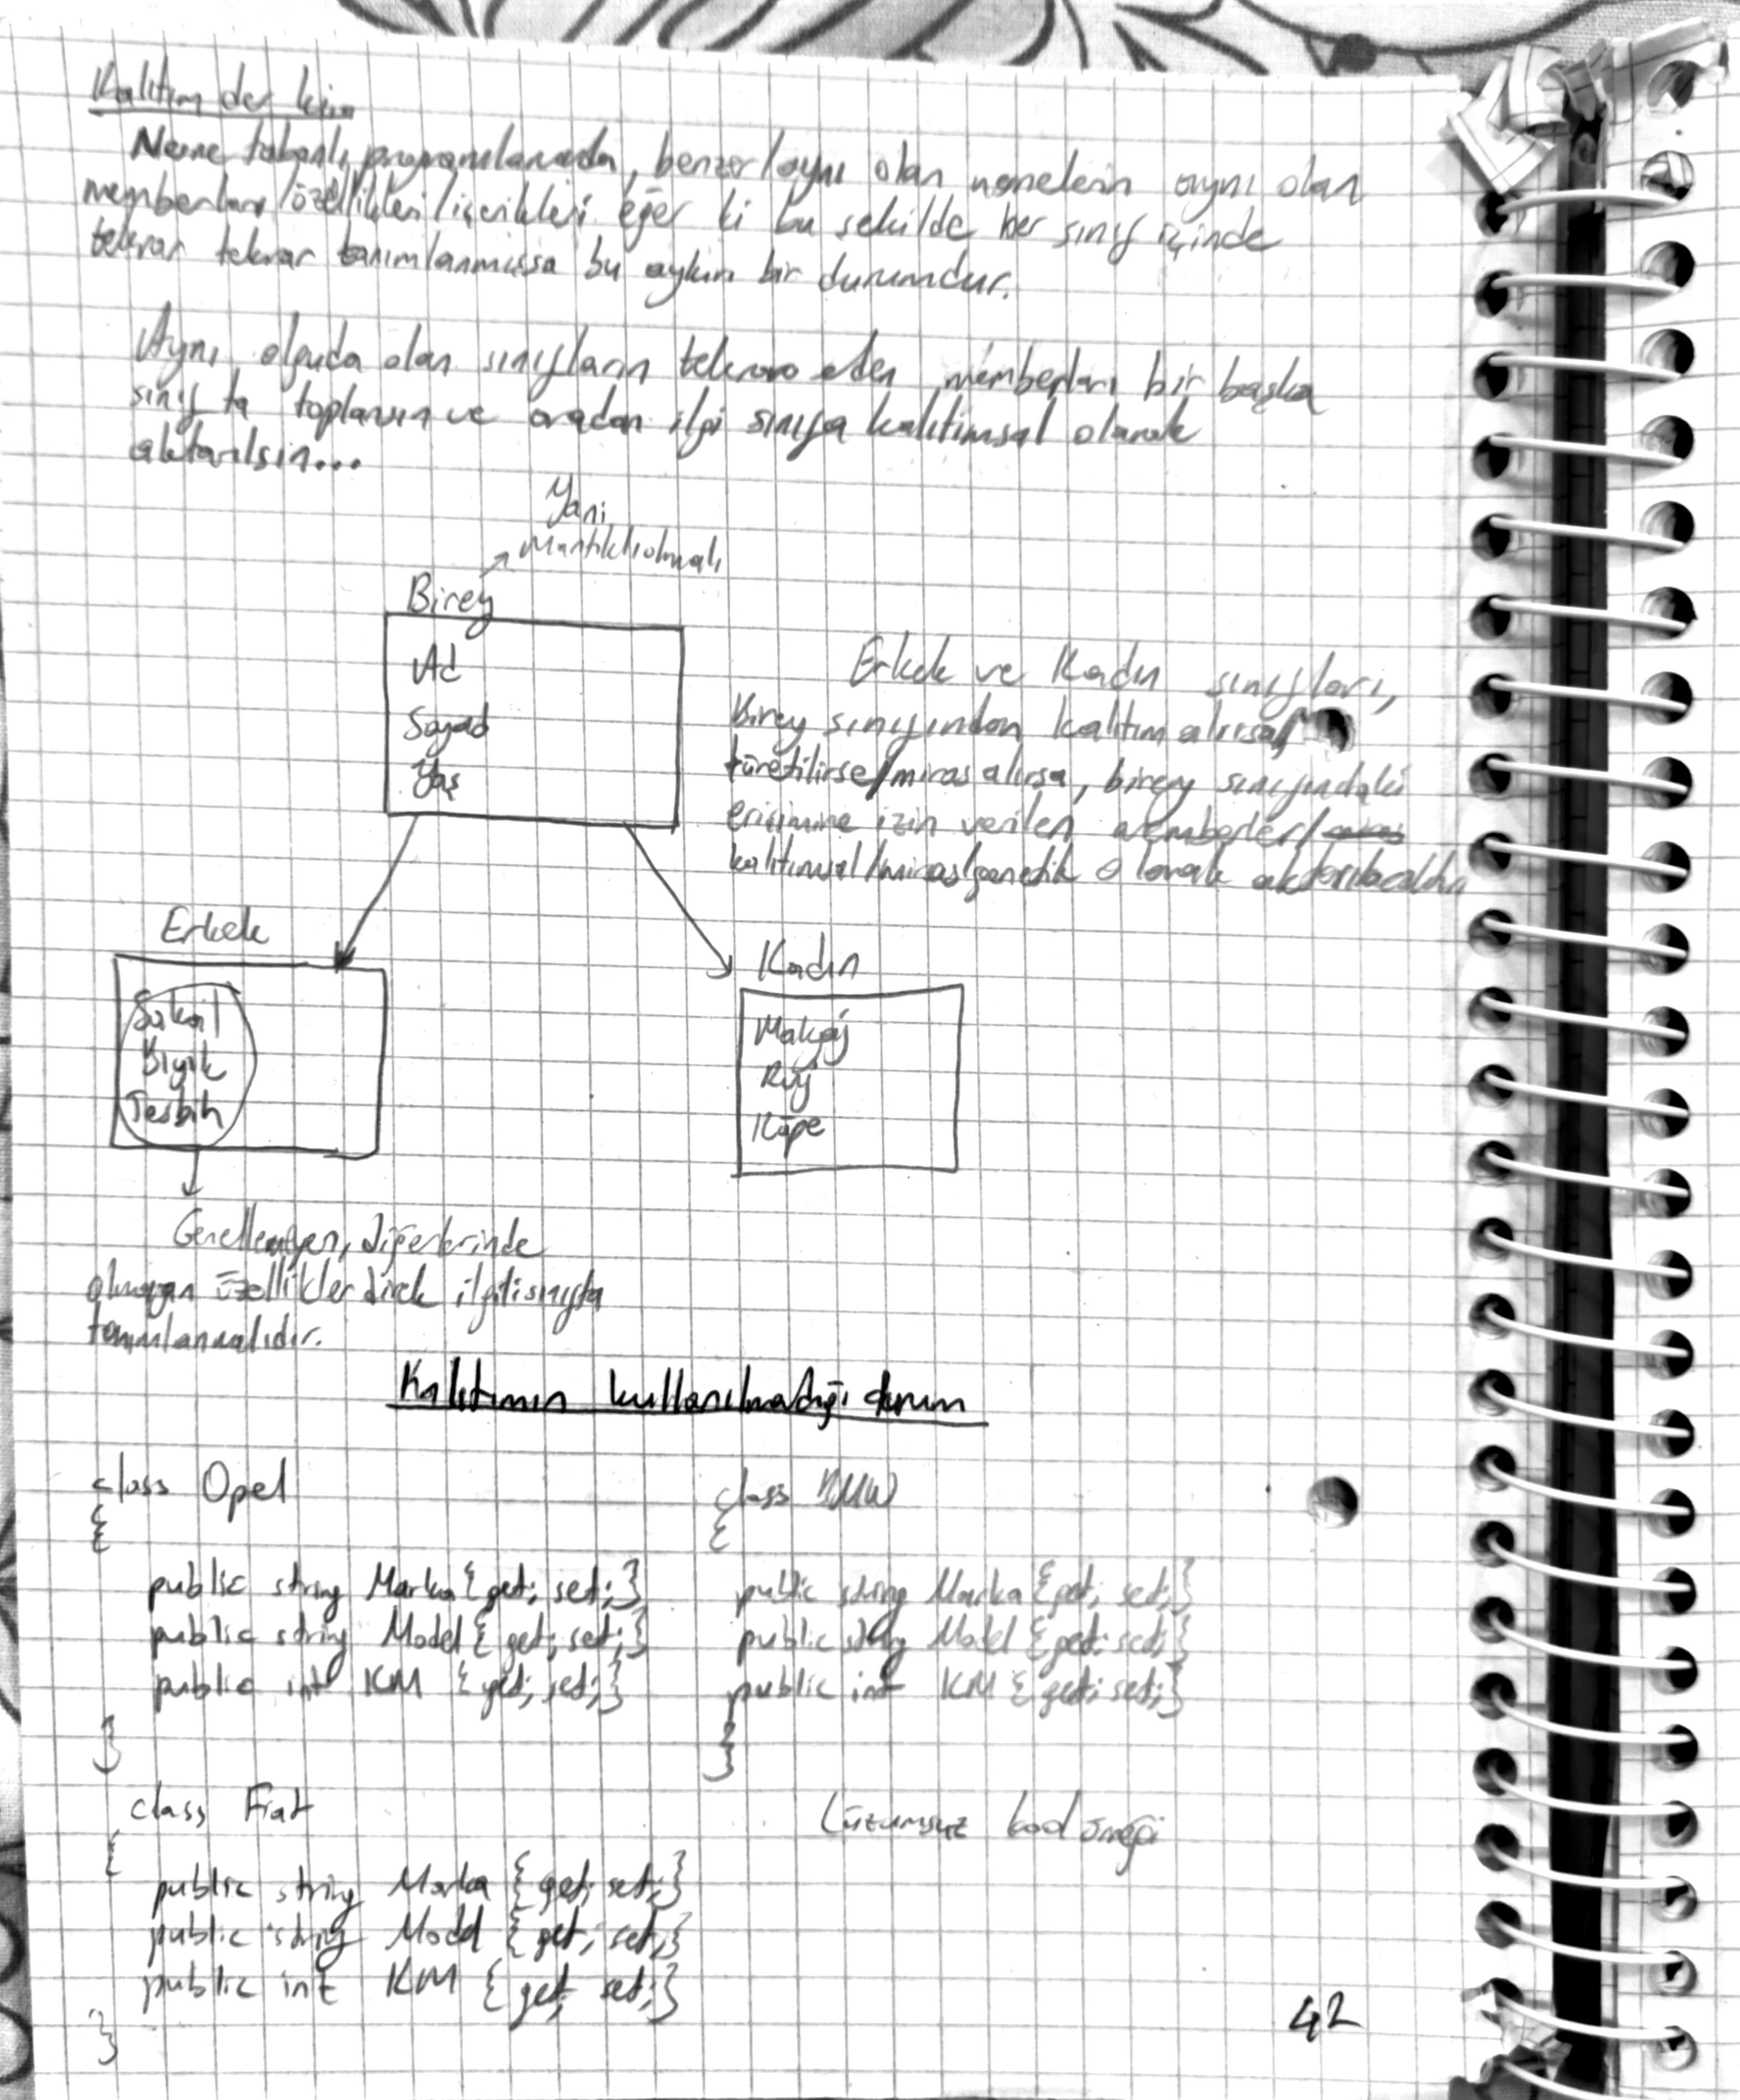 Kalıtım der ki;
Nesne tabanlı programlamada, benzer/aynı olan nesnelerin aynı olan
memberları/özellikleri/içerikleri eğer ki bu şekilde her sınıf içinde
tekrar tekrar tanımlanmışsa bu aykırı bir durumdur.
Aynı olguda olan sınıfların tekrar eden memberları bir başka
sınıfta toplansın ve oradan ilgi sınıfa kalıtımsal olarak
aktarılsın...
Yani
Mantıklı olmalı
Birey
Ad
Soyad
Yaş
Erkek ve Kadın sınıfları,
Birey sınıfından kalıtım alırsa/
türetilirse/miras alırsa, birey sınıfındaki
erişimine izin verilen memberler/
kalıtımsal/miras/genetik olarak
Erkek
Sakal
Bıyık
Tesbih
Kadın
Makyaj
Ruj
Küpe
Genellenmeyen, diğerlerinde
olmayan özellikler direk ilgili sınıfta
tanımlanmalıdır.
Kalıtımın kullanılmadığı durum
class Opel
{
public string Marka {get; set;}
public string Model {get; set;}
public int KM {get; set;}
}
class BMW
{
public string Marka {get; set;}
public string Model {get; set;}
public int KM {get; set;}
}
class Fiat
{
public string Marka {get; set;}
public string Model {get; set;}
public int KM {get; set;}
}
Lüzumsuz kod örneği
42